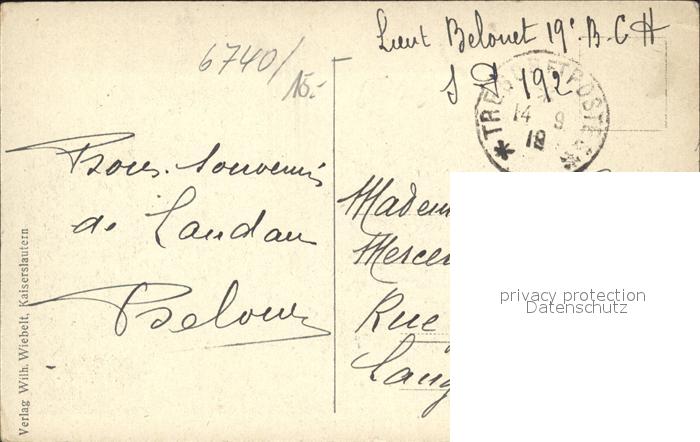 Lieut Belouet 19e B.C.H
S P 192
6740/
15.-
TRESOR ET POSTES
14 9
19
Bons souvenirs
de Landau
Belouet
Madem
Mercer
Rue
Lang
privacy protection
Datenschutz
Verlag Wilh. Wiebelt, Kaiserslautern